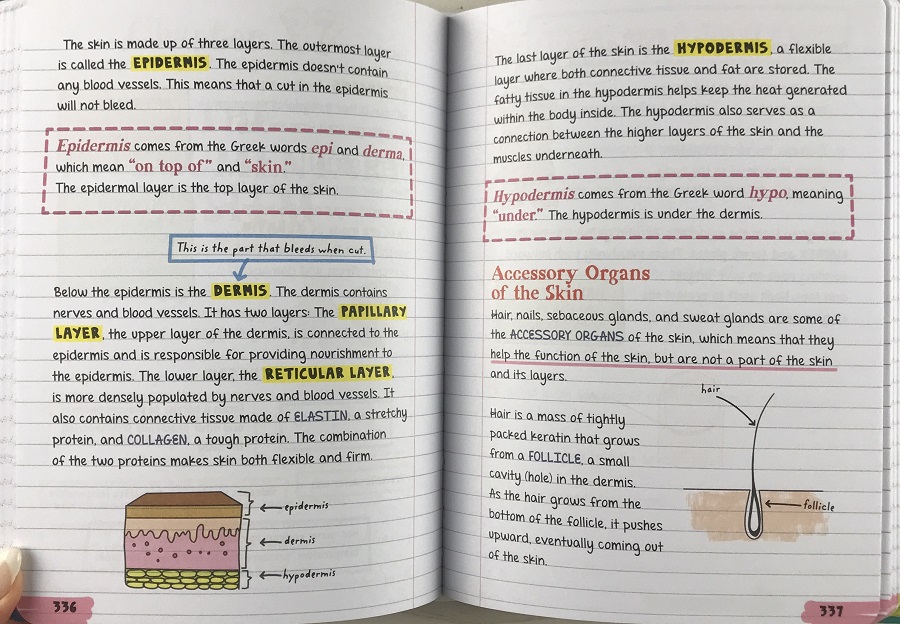 The skin is made up of three layers. The outermost layer
is called the EPIDERMIS. The epidermis doesn't contain
any blood vessels. This means that a cut in the epidermis
will not bleed.
Epidermis comes from the Greek words epi and derma,
which mean "on top of" and "skin."
The epidermal layer is the top layer of the skin.
This is the part that bleeds when cut.
Below the epidermis is the DERMIS. The dermis contains
nerves and blood vessels. It has two layers: The PAPILLARY
LAYER, the upper layer of the dermis, is connected to the
epidermis and is responsible for providing nourishment to
the epidermis. The lower layer, the RETICULAR LAYER,
is more densely populated by nerves and blood vessels. It
also contains connective tissue made of ELASTIN, a stretchy
protein, and COLLAGEN, a tough protein. The combination
of the two proteins makes skin both flexible and firm.
epidermis
dermis
hypodermis
336
The last layer of the skin is the HYPODERMIS, a flexible
layer where both connective tissue and fat are stored. The
fatty tissue in the hypodermis helps keep the heat generated
within the body inside. The hypodermis also serves as a
connection between the higher layers of the skin and the
muscles underneath.
Hypodermis comes from the Greek word hypo, meaning
"under." The hypodermis is under the dermis.
Accessory Organs
of the Skin
Hair, nails, sebaceous glands, and sweat glands are some of
the ACCESSORY ORGANS of the skin, which means that they
help the function of the skin, but are not a part of the skin
and its layers.
hair
Hair is a mass of tightly
packed keratin that grows
from a FOLLICLE, a small
cavity (hole) in the dermis.
As the hair grows from the
bottom of the follicle, it pushes
upward, eventually coming out
of the skin.
follicle
337